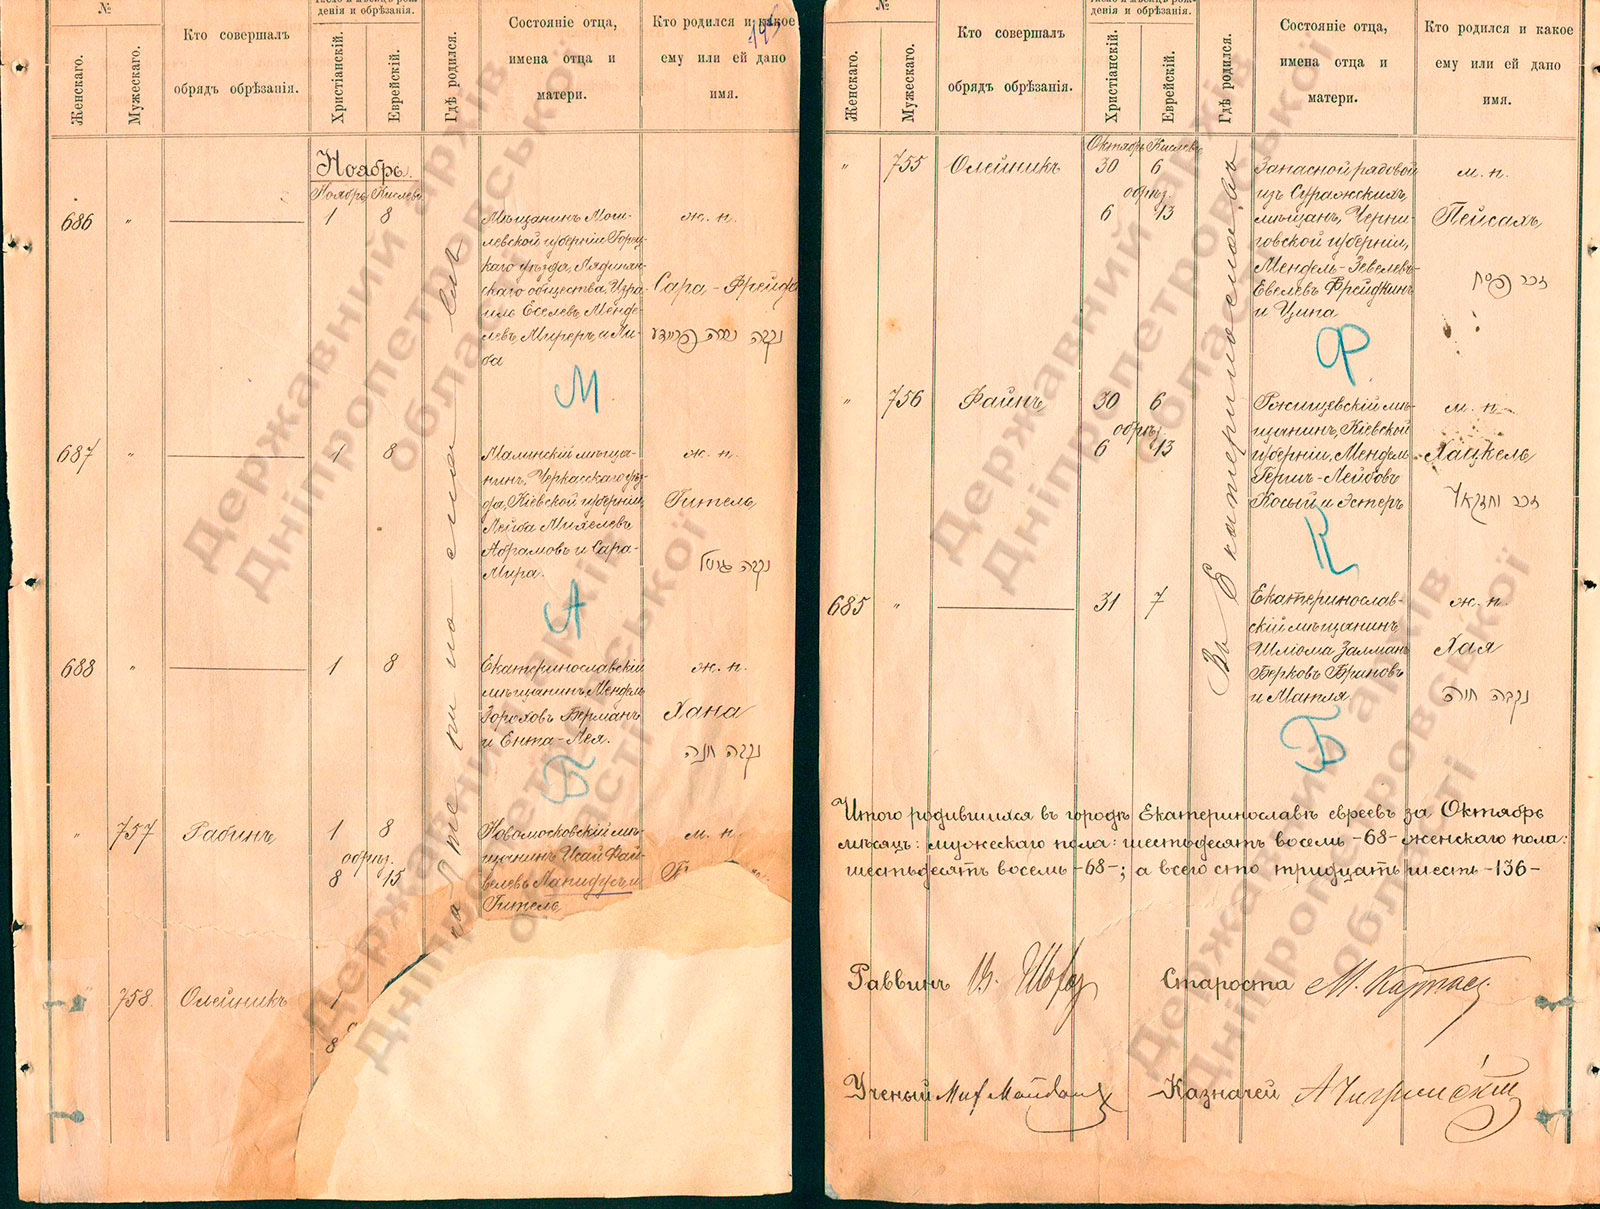 №
Число и мѣсяцъ рож-
денія и обрѣзанія.
Женскаго.
Мужескаго.
Кто совершалъ
обрядъ обрѣзанія.
Христіанскій.
Еврейскій.
Гдѣ родился.
Состояніе отца,
имена отца и
матери.
Кто родился и какое
ему или ей дано
имя.
Ноябрь.
Ноябрь Кислевъ
686 " 1 8
Мѣщанинъ Моги-
левской губерніи Горец-
каго уѣзда, Лядинян-
скаго общества, Изра-
иль Еселевъ Менде-
левъ Миреръ и Ли-
ба
ж. п.
Сара-Фрейда
נקבה שרה פריידע
М
687 " 1 8
Малинскій мѣща-
нинъ, Черкасскаго уѣз-
да, Кіевской губерніи,
Лейба Михелевъ
Абрамовъ и Сара-
Мира.
ж. п.
Гитель
נקבה גיטל
А
688 " 1 8
Екатеринославскій
мѣщанинъ Мендель
Зороховъ Берманъ
и Ента-Лея.
ж. п.
Хана
נקבה חנה
Б
" 757 Рабинъ 1 8
обрѣз.
8 15
Новомосковскій мѣ-
щанинъ Исай Фай-
велевъ Лапидусъ и
Гитель
м. п.
758. Олейникъ 1
8
№
Число и мѣсяцъ рож-
денія и обрѣзанія.
Женскаго.
Мужескаго.
Кто совершалъ
обрядъ обрѣзанія.
Христіанскій.
Еврейскій.
Гдѣ родился.
Состояніе отца,
имена отца и
матери.
Кто родился и какое
ему или ей дано
имя.
Октябрь Кислевъ
" 755 Олейникъ 30 6
обрѣз.
6 13
Запасной рядовой
изъ Суражскихъ
мѣщанъ, Черни-
говской губерніи,
Мендель-Зевелевъ-
Евелевъ Фрейдкинъ
и Ципа
м. п.
Пейсахъ
זכר פסח
Ф
" 756 Файнъ 30 6
обрѣз.
6 13
Ржищевскій мѣ-
щанинъ, Кіевской
губерніи, Мендель
Гершъ-Лейбовъ
Косый и Эстеръ
м. п.
Хацкель
זכר יחזקאל
К
685 " 31 7
Въ Екатеринославѣ
Екатеринослав-
скій мѣщанинъ
Шлиома Залманъ
Берковъ Бриповъ
и Матля.
ж. п.
Хая
נקבה חיה
Б
Итого родившихся въ городѣ Екатеринославѣ евреевъ за Октябрь
мѣсяцъ: мужескаго пола: шестьдесятъ восемь -68- женскаго пола:
шестьдесятъ восемь -68-; а всего сто тридцать шесть -136-
Раввинъ
Староста
Ученый
Казначей
Державний архів
Дніпропетровської
області